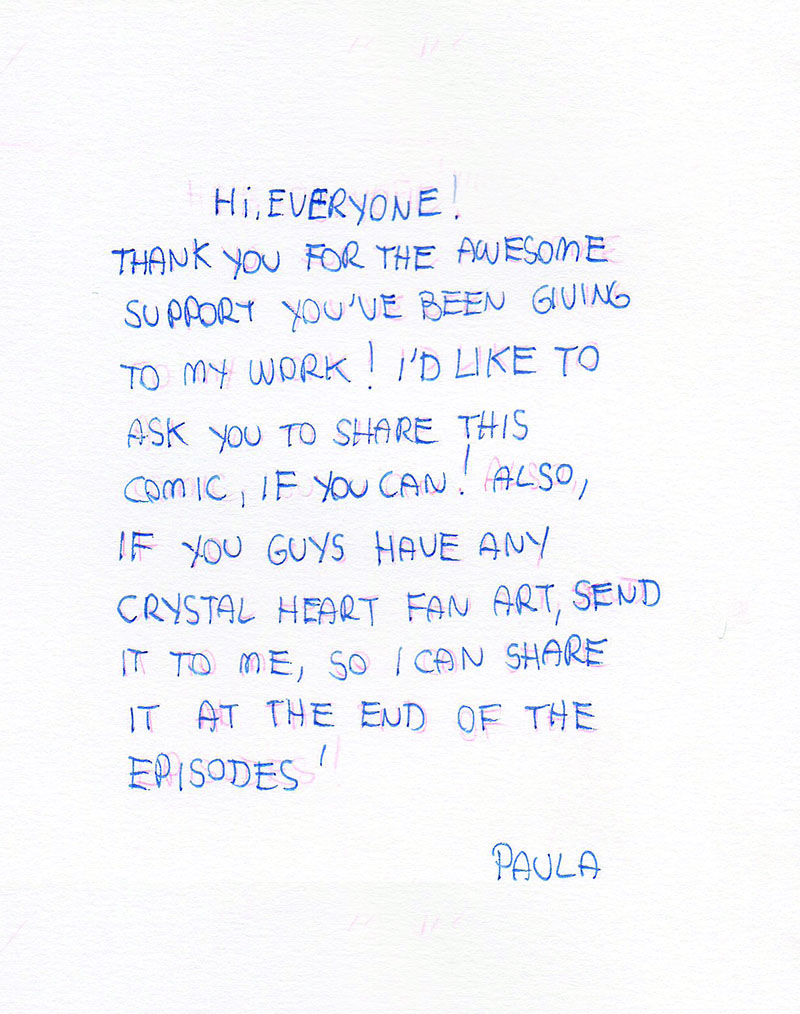 Hi, EVERYONE!
THANK YOU FOR THE AWESOME
SUPPORT YOU'VE BEEN GIVING
TO MY WORK! I'D LIKE TO
ASK YOU TO SHARE THIS
COMIC, IF YOU CAN! ALSO,
IF YOU GUYS HAVE ANY
CRYSTAL HEART FAN ART, SEND
IT TO ME, SO I CAN SHARE
IT AT THE END OF THE
EPISODES!
PAULA